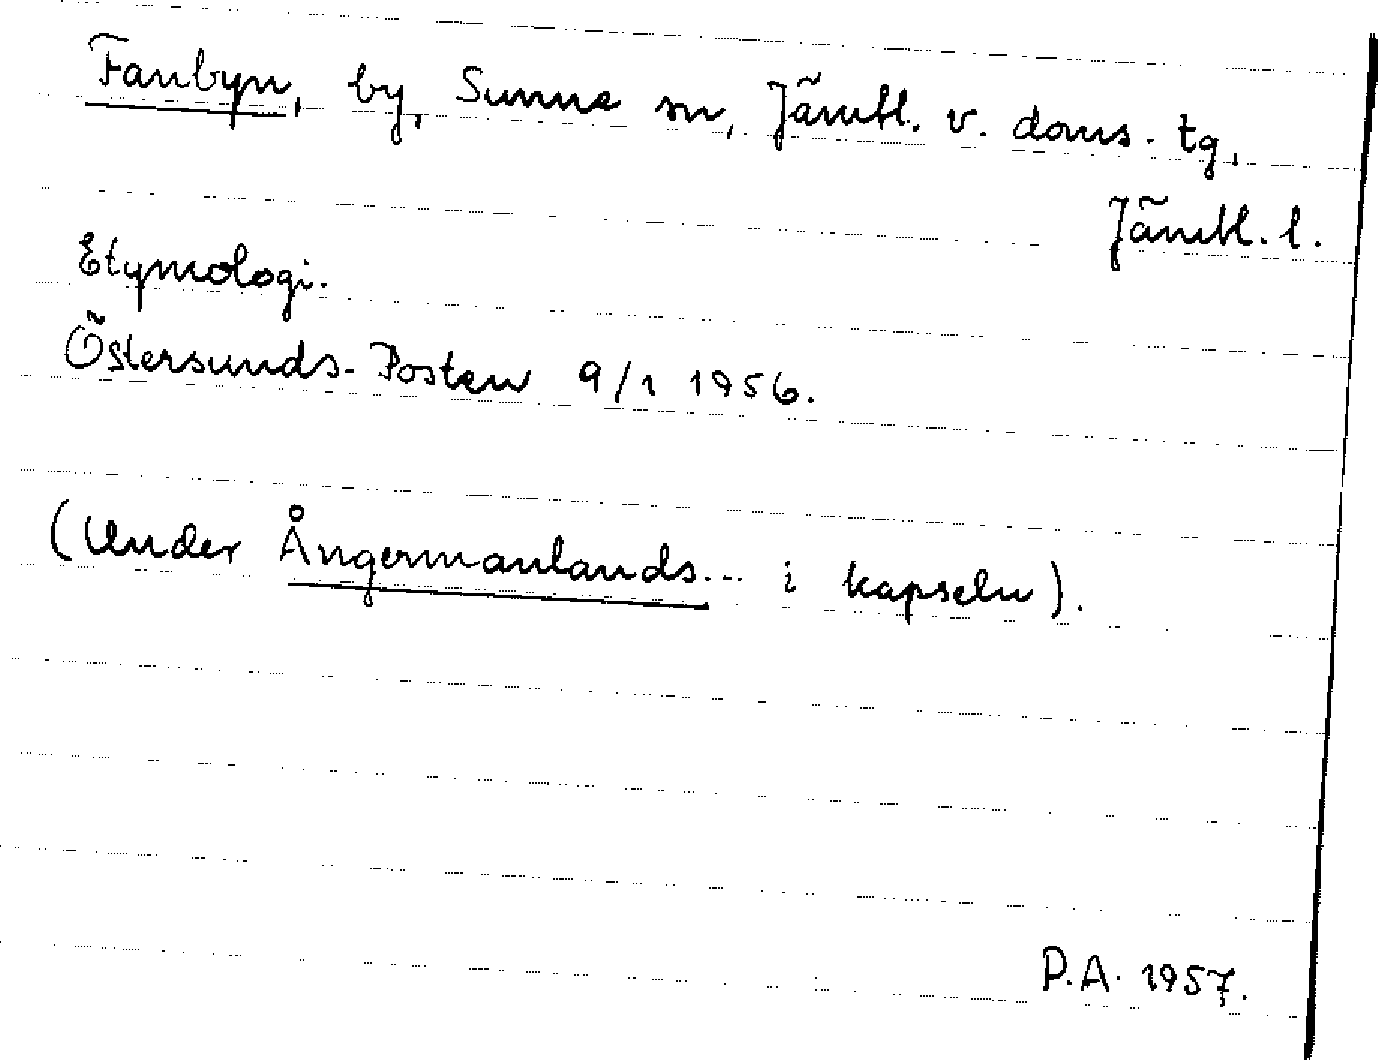 Fanbyn, by, Sunne sn, Jämtl. v. doms. tg,
Jämtl. l.
Etymologi.
Östersunds-Posten 9/1 1956.
(Under Ångermanlands... i kapseln).
P.A. 1957.